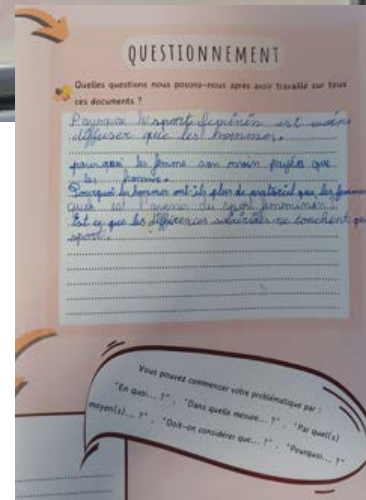 QUESTIONNEMENT
Quelles questions nous posons-nous après avoir travaillé sur tous
ces documents ?
Pourquoi le sport féminin est moins
diffuser que les hommes.
pourquoi les femme son moin payés que
les homme.
Pourquoi les hommes ont-ils plus de matériel que les femmes
Quel est l'avenir du sport femininin
Est ce que les différences salariales ne touchent que
sport
Vous pouvez commencer votre problématique par :
"En quoi... ?" , "Dans quelle mesure... ?" , "Par quel(s)
moyen(s)... ?" , "Doit-on considérer que... ?" , "Pourquoi... ?"